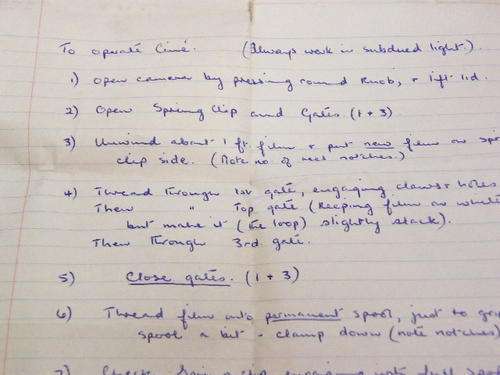 To operate Ciné. (Always work in subdued light).
1) Open camera by pressing round knob, + lift lid.
2) Open Spring Clip and Gates. (1 + 3)
3) Unwind about 1 ft. film + put new film on
clip side. (Note no. of reel notches.)
4) Thread through 1st gate, engaging claws + holes.
Then " Top gate (keeping film on
but make it (the loop) slightly slack).
Then through 3rd gate.
5) Close gates. (1 + 3)
6) Thread film onto permanent spool, just to
spool a bit - clamp down (note notches)
7) Check